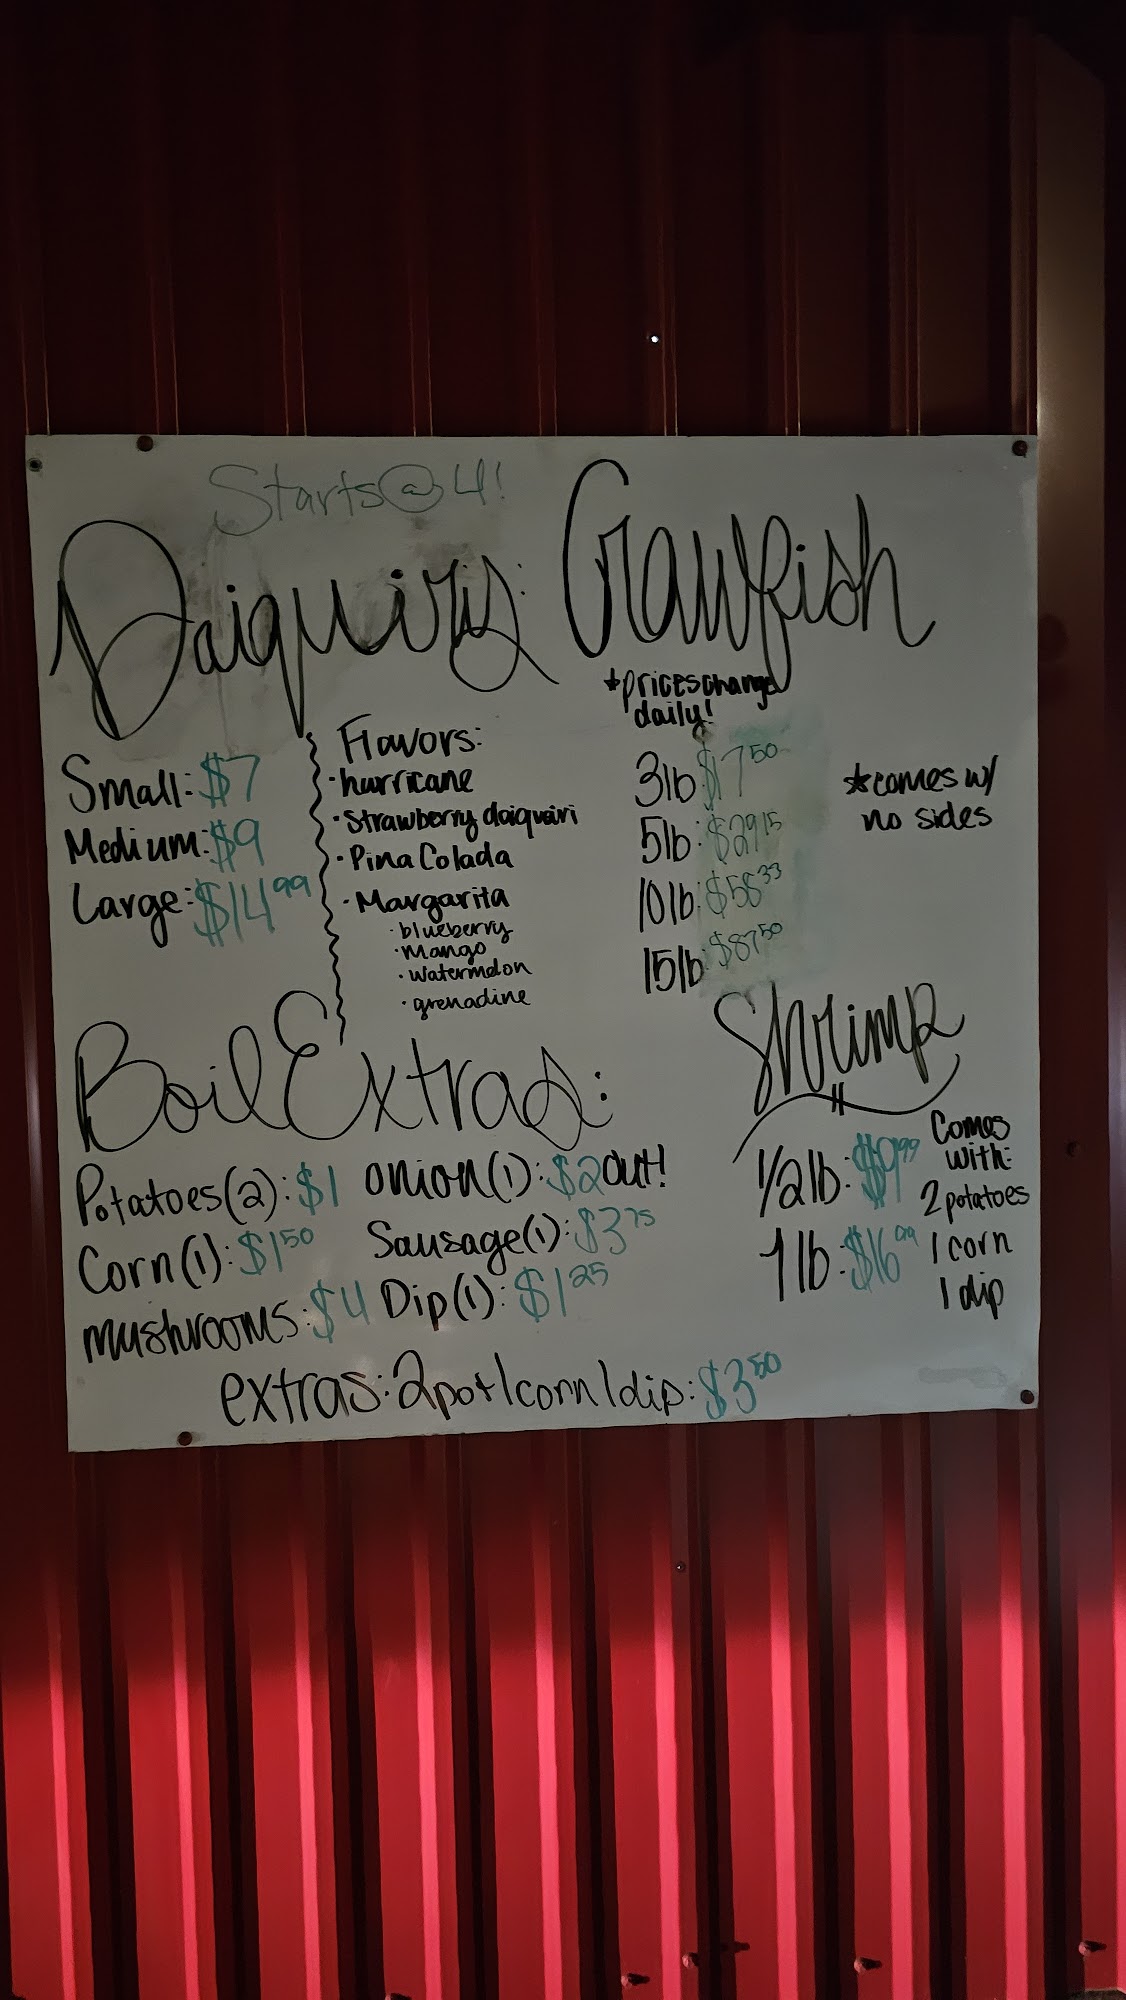 Starts@4!
Daiquiris:
Small: $7
Medium: $9
Large: $14.99
Flavors:
· hurricane
· Strawberry daiquiri
· Pina Colada
· Margarita
· blueberry
· Mango
· watermelon
· grenadine
Crawfish
*prices change
daily!
3lb: $17.50
5lb: $29.15
10lb: $58.33
15lb: $87.50
*comes w/
no sides
Boil Extras:
Potatoes(2): $1
Corn(1): $1.50
mushrooms: $4
onion(1): $2 out!
Sausage(1): $3.75
Dip(1): $1.25
extras: 2pot 1corn 1dip: $3.50
Shrimp
1/2lb: $9.99
1lb: $16.99
Comes
with:
2 potatoes
1 corn
1 dip